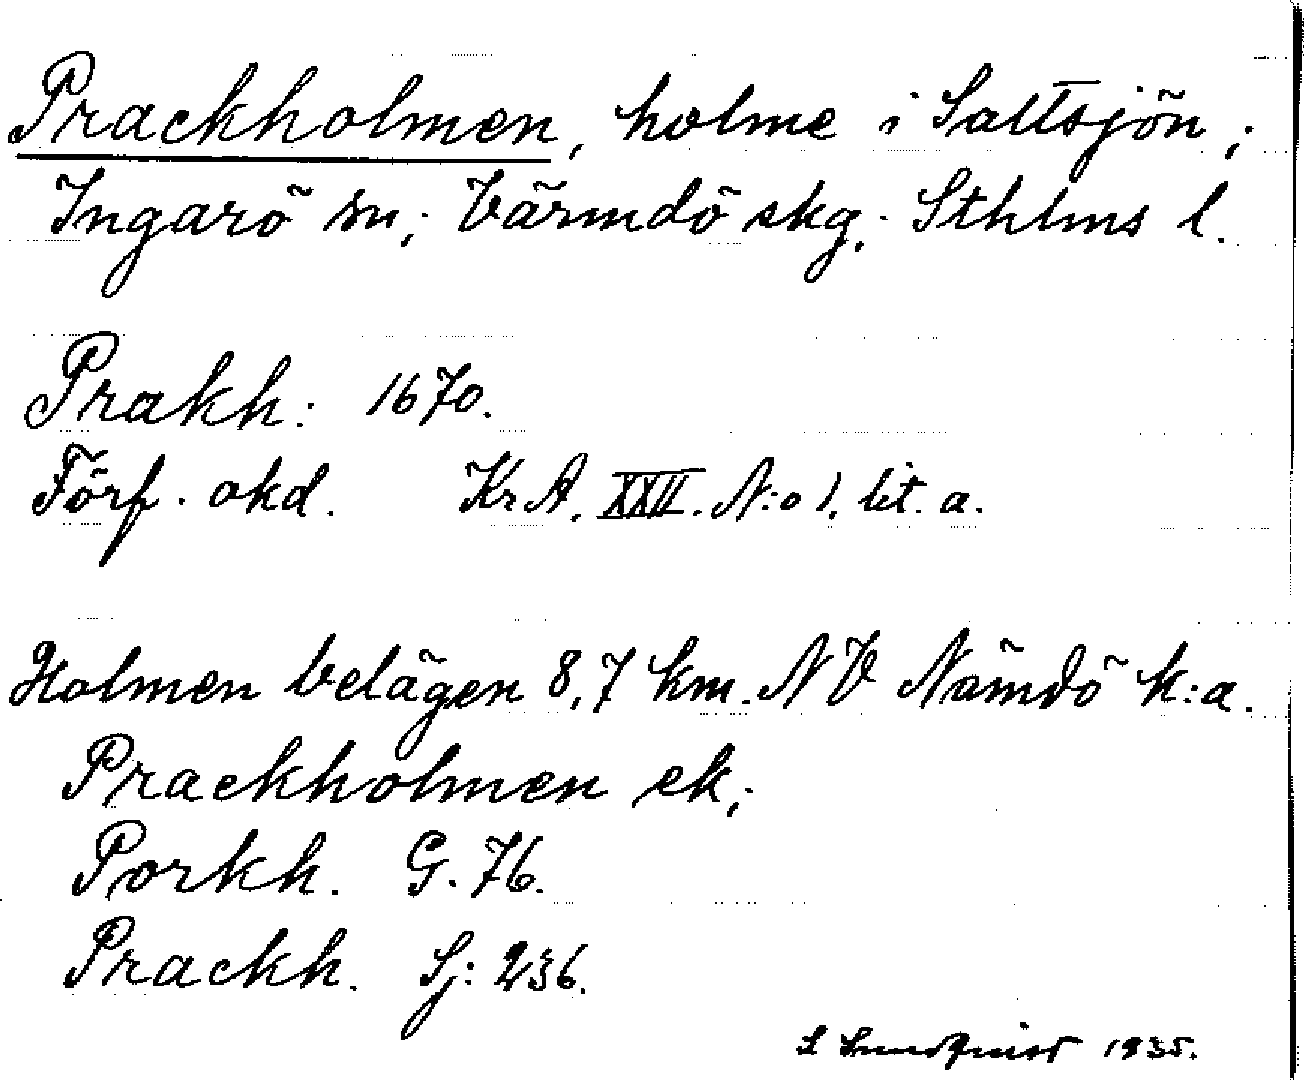 Prackholmen, holme i Saltsjön,
Ingarö sn; Värmdö skg. Sthlms l.
Prakh: 1670.
Förf. okd. Kr A. XXII. N:o 1, lit. a.
Holmen belägen 8,7 km. NV Nämdö k:a.
Prackholmen ek;
Porkh. G. 76.
Prackh. Sj: 236.
S Lundquist 1935.